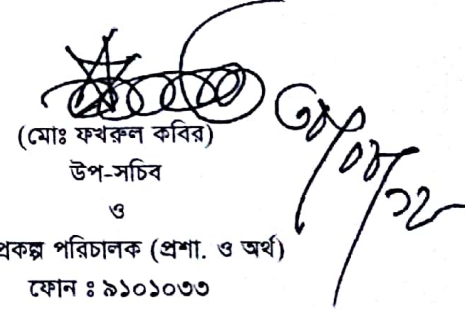 (মোঃ ফখরুল কবির)
উপ-সচিব
ও
প্রকল্প পরিচালক (প্রশা. ও অর্থ)
ফোন ঃ ৯১০১০৩৩